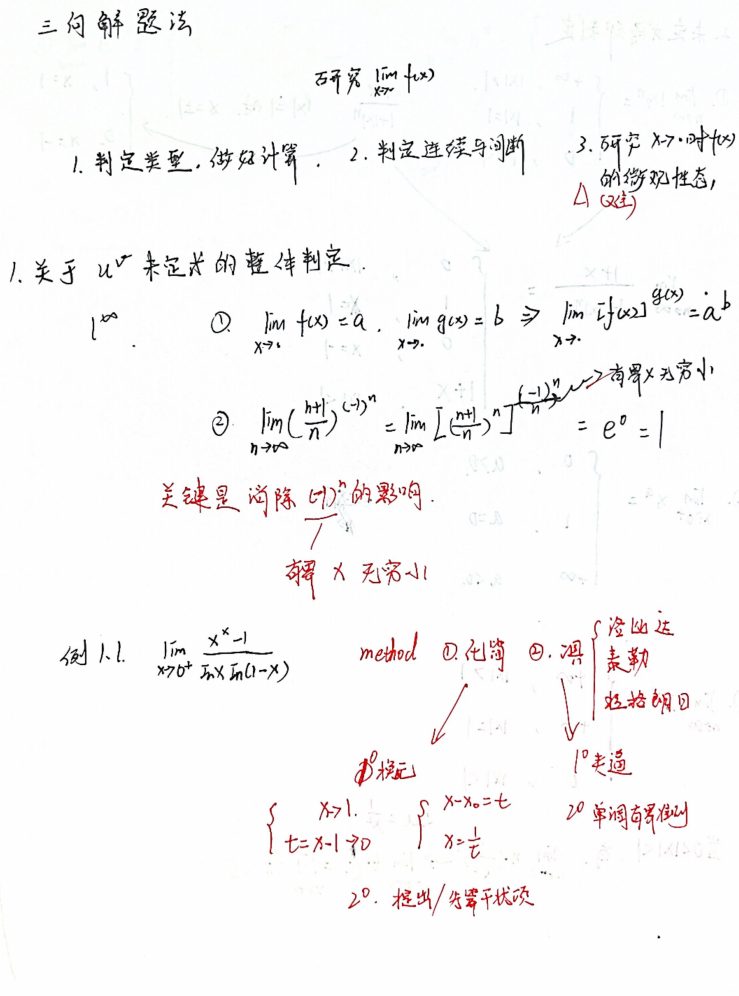 三向解题法
研究 lim x→· f(x)
1. 判定类型,做好计算. 2. 判定连续与间断 3. 研究 x→·时f(x)
的微观性态,
△ (注)
1. 关于 u^v 未定式的整体判定.
1^∞. ①. lim x→· f(x) = a. lim x→· g(x) = b ⇒ lim x→· [f(x)]^g(x) = a^b
② lim n→∞ (n+1/n)^(-1)^n = lim n→∞ [(n+1/n)^n]^((-1)^n/n) → 有界×无穷小 = e^0 = 1
关键是消除 (-1)^n 的影响.
有界 × 无穷小
例 1.1. lim x→0+ (x^x - 1)/(ln x ln(1-x)) method ①. 化简 ②. 洛必达
泰勒
拉格朗日
1° 换元 1° 夹逼
{ x→1. t=x-1→0 { x-x₀=t x=1/t 2° 单调有界准则
2°. 提出/先算干扰项